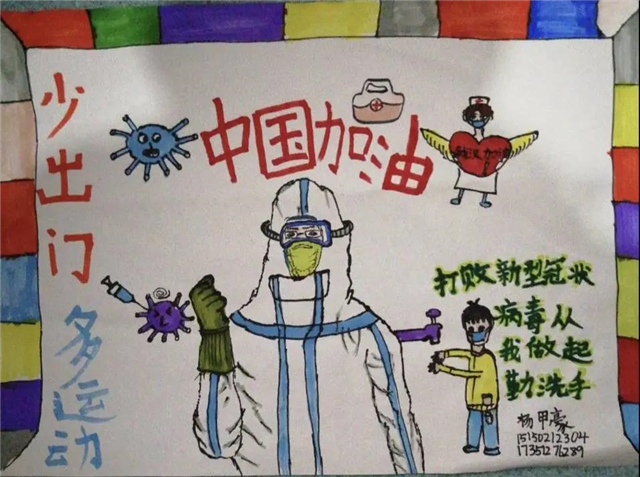 中国加油
少出门
多运动
武汉加油
打败新型冠状
病毒从
我做起
勤洗手
杨甲豪
15150212304
17351276289